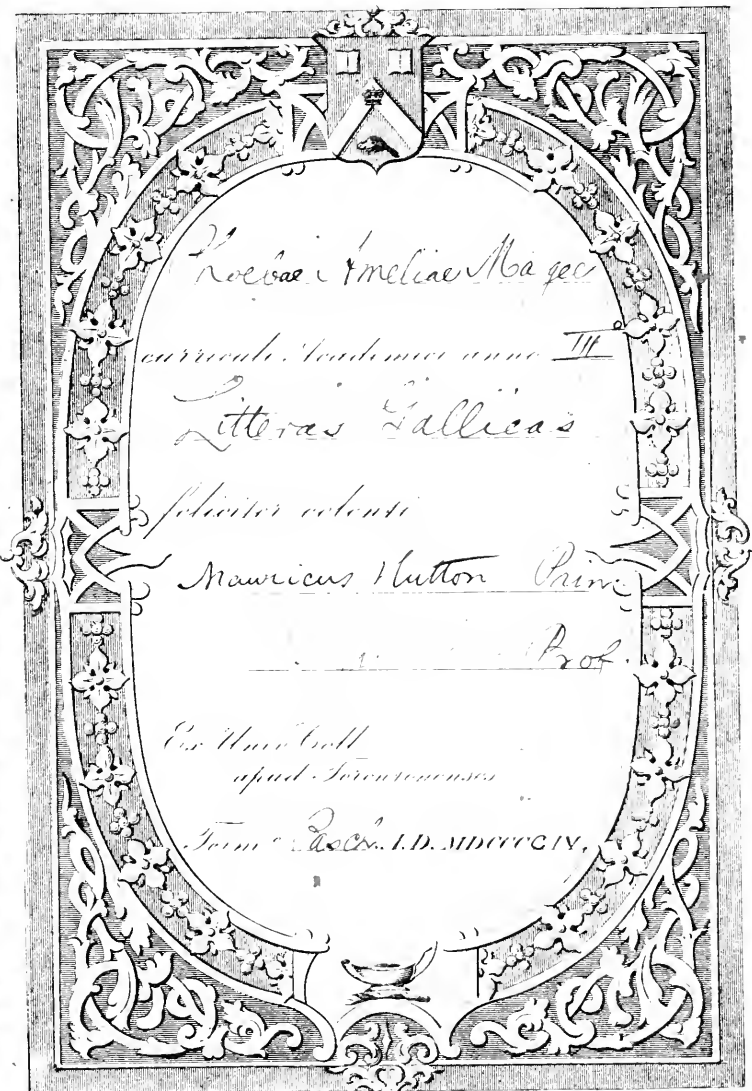 Phoebae Ameliae Magee
curriculi Academici anno III°
Litteras Gallicas
feliciter colenti
Mauricus Hutton Prin.
Prof.
Ex Univ Coll
apud Torontonenses
Term° Pasch. A.D. MDCCCCIV.